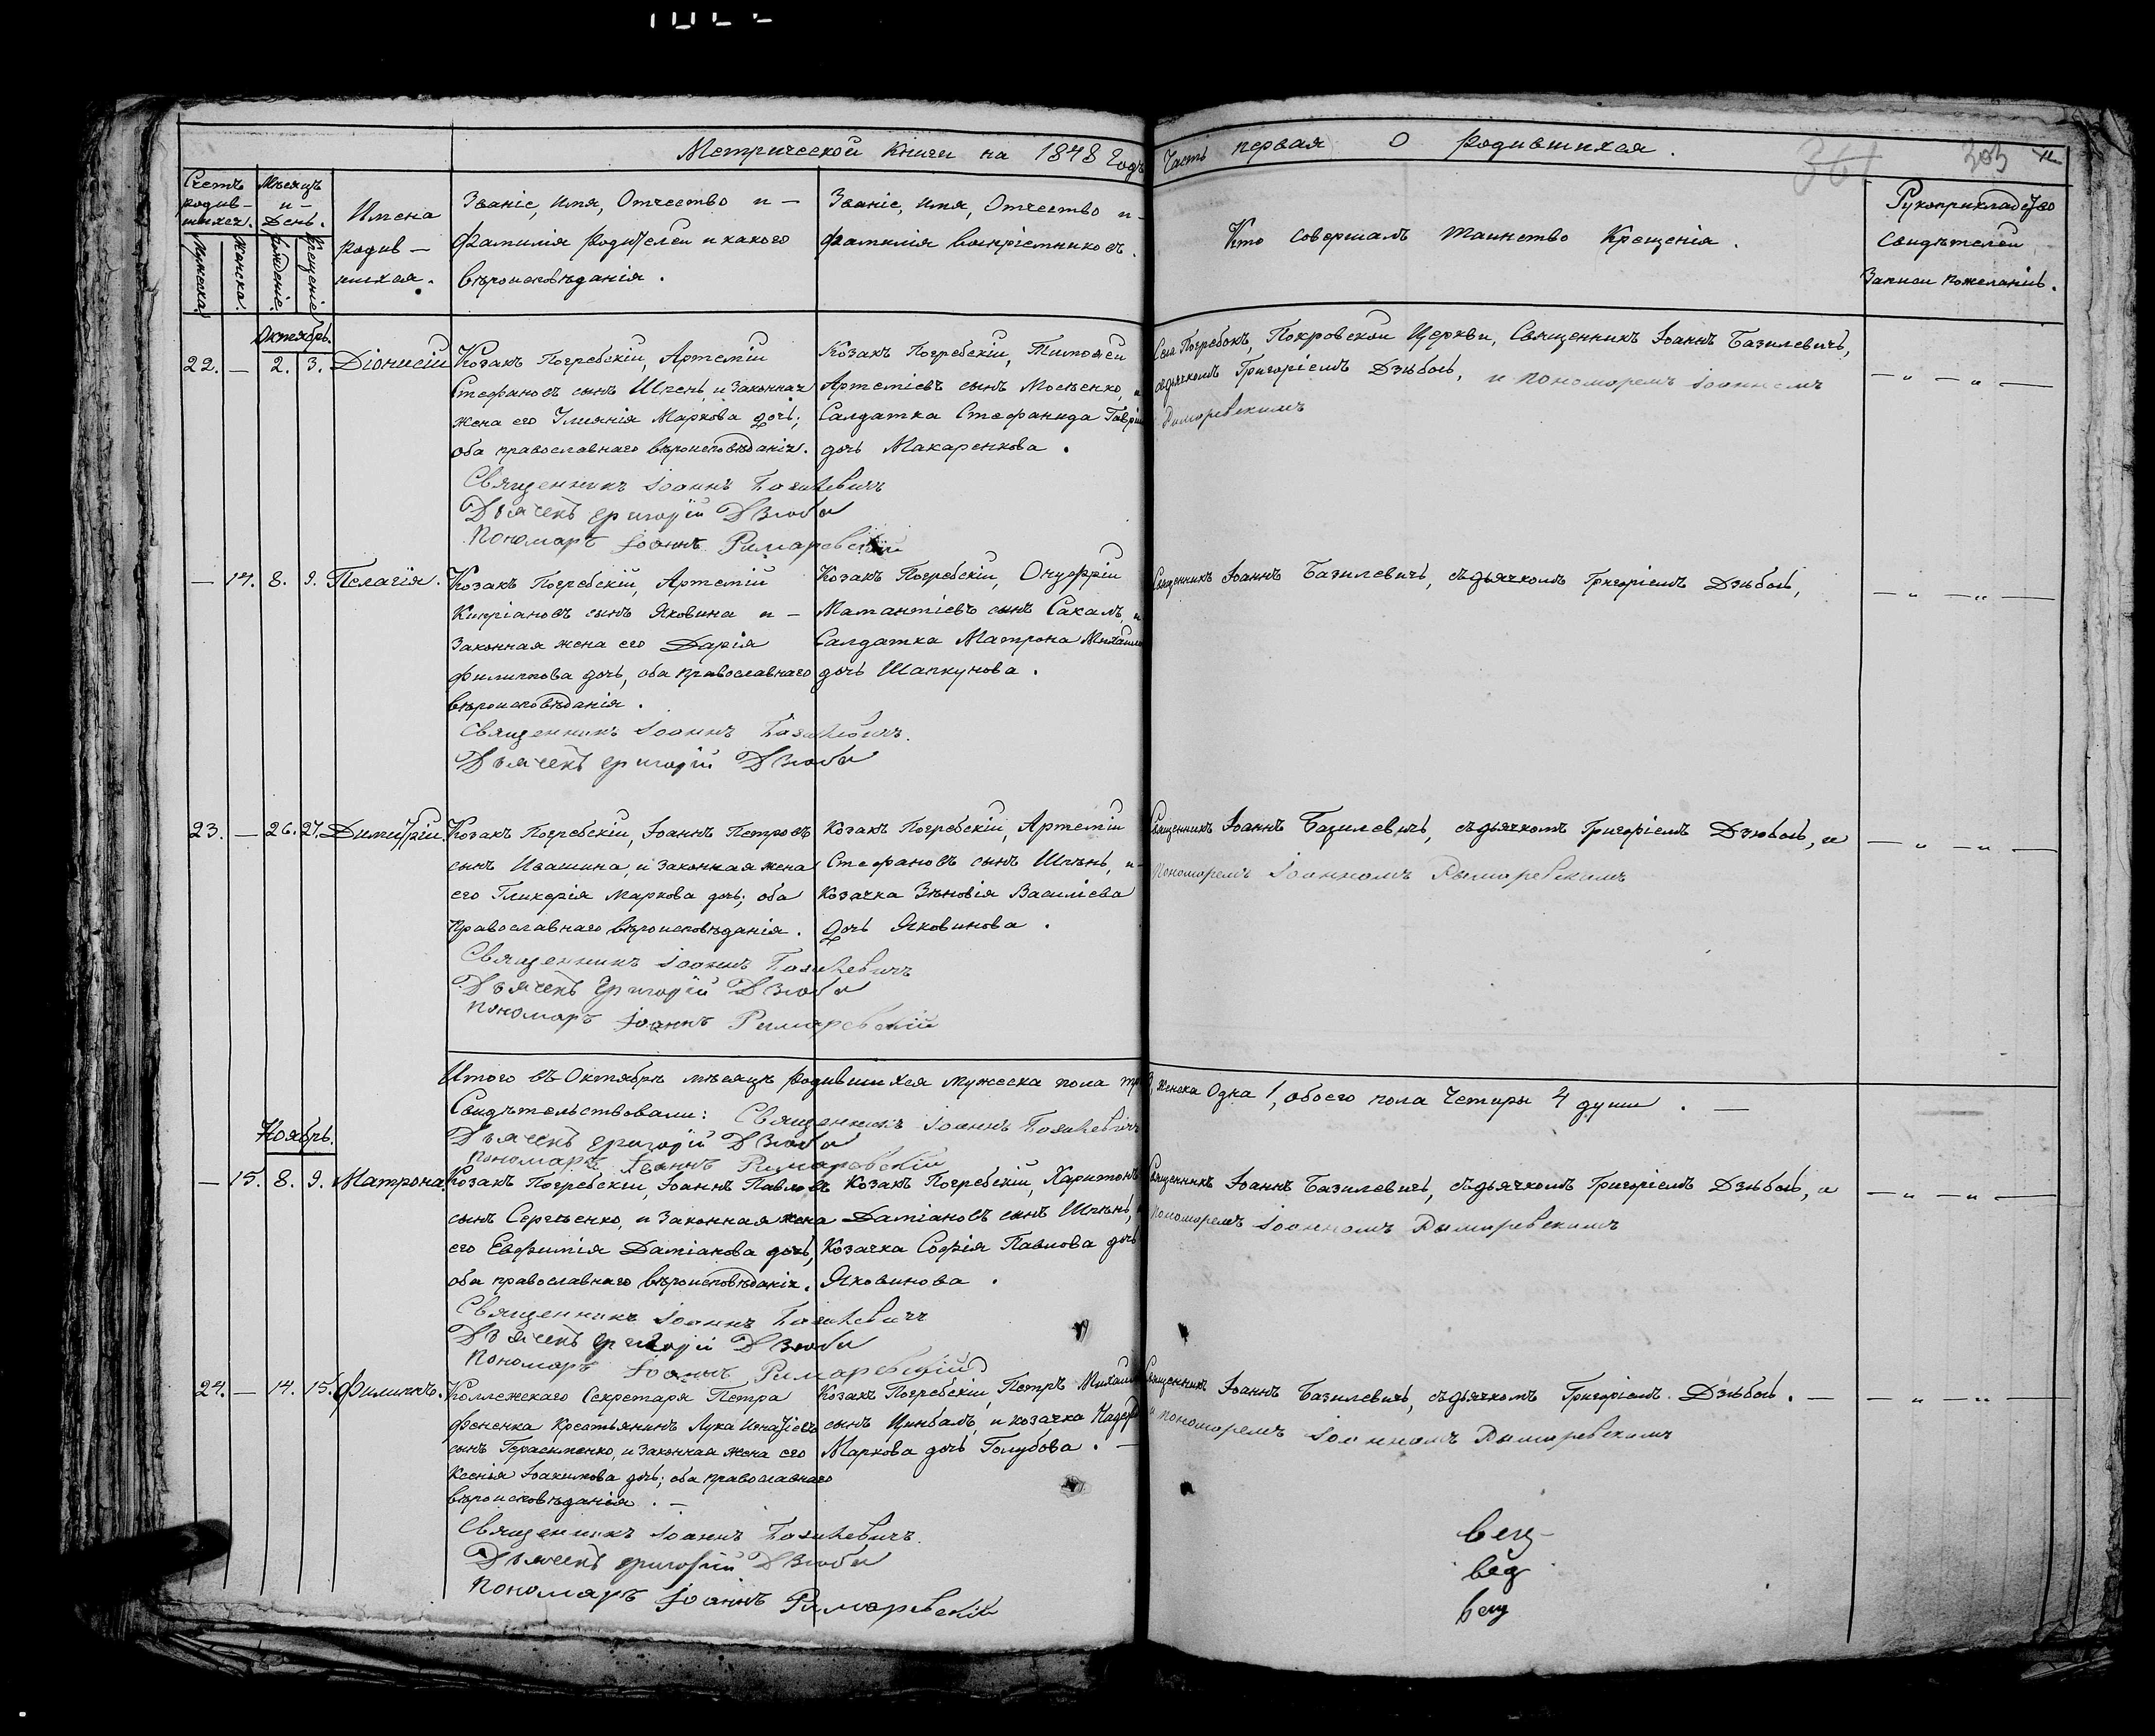 Метрической Книги на 1848 Годъ
Часть первая О Родившихся.
361 303
Счетъ родив-шихся.
Мѣсяцъ и День.
Мужеска.
Женска.
Рожденіе.
Крещеніе
Имена родив-шихся.
Званіе, Имя, Отчество и -
Фамилія Родителей и какого
вѣроисповѣданія.
Званіе, Имя, Отчество и -
Фамилія Воспріемниковъ.
Кто совершалъ таинство Крещенія.
Рукоприкладство
Свидѣтелей
Записи пожеланію.
Октябрь.
22. — 2. 3. Діонисій
Козакъ Погребскій, Артемій
Стефановъ сынъ Шпень, и законная
жена его Улиянія Маркова дочь;
оба православнаго вѣроисповѣданія.
Козакъ Погребскій, Тимофей
Артеміевъ сынъ Мосѣенко, и
Салдатка Стефанида Гаврі
дочь Макаренкова.
Села Погребокъ, Покровской Церкви, Священникъ Іоаннъ Базилевичь,
съдьячкомъ Григоріемъ Дзюбою, и пономаремъ Іоанномъ
Римаревскимъ
Священникъ Іоаннъ Базилевичъ
Дьячекъ Григорій Дзюба
Пономарь Іоаннъ Римаревскій
— 14. 8. 9. Пелагія.
Козакъ Погребскій, Артемій
Кипріановъ сынъ Яковина и -
Законная жена его Дарія
Филиппова дочь, оба православнаго
вѣроисповѣданія.
Козакъ Погребскій, Онуфрій
Мамантіевъ сынъ Сакалъ, и
Салдатка Матрона Михаило
дочь Шапкунова.
Священникъ Іоаннъ Базилевичь, съдьячкомъ Григоріемъ Дзюбою,
Священникъ Іоаннъ Базилевичъ.
Дьячекъ Григорій Дзюба
23. — 26. 27. Димитрій.
Козакъ Погребскій, Іоаннъ Петровъ
сынъ Ивашина, и законная жена
его Гликерія Маркова дочь; оба
православнаго вѣроисповѣданія.
Козакъ Погребскій, Артемій
Стефановъ сынъ Шпѣнь, и-
Козачка Зѣновія Василіева
дочь Яковинова.
Священникъ Іоаннъ Базилевичь, съдьячкомъ Григоріемъ Дзюбою, и
Пономаремъ Іоанномъ Рымаревскимъ
Священникъ Іоаннъ Базилевичъ
Дьячекъ Григорій Дзюба
Пономарь Іоаннъ Римаревскій
Итого въ Октябрѣ мѣсяцѣ родившихся мужеска пола три 3, женска Одна 1, обоего пола Четыри 4 души. —
Свидѣтельствовали: Священникъ Іоаннъ Базилевичъ
Дьячекъ Григорій Дзюба
Пономарь Іоаннъ Римаревскій
Ноябрь.
— 15. 8. 9. Матрона.
Козакъ Погребскій, Іоаннъ Павловъ
сынъ Сергѣенко, и законная жена
его Евфимія Даміанова дочь,
оба православнаго вѣроисповѣданія.
Козакъ Погребскій, Харитонъ
Даміановъ сынъ Шпѣнь, и
Козачка Софія Павлова дочь
Яковинова.
Священникъ Іоаннъ Базилевичь, съдьячкомъ Григоріемъ Дзюбою, и
Пономаремъ Іоанномъ Рымаревскимъ
Священникъ Іоаннъ Базилевичъ
Дьячекъ Григорій Дзюба
Пономарь Іоаннъ Римаревскій
24. — 14. 15. Филиппъ.
Коллежскаго Секретаря Петра
Фененка Крестьянинъ Лука Игнатіевъ
сынъ Герасименко, и законная жена его
Ксенія Іоакимова дочь; оба православнаго
вѣроисповѣданія. —
Козакъ Погребскій, Петръ Михаил
сынъ Цимбалъ, и козачка
Маркова дочь Голубова. —
Священникъ Іоаннъ Базилевичь, съдьячкомъ Григоріемъ Дзюбою. —
и пономаремъ Іоанномъ Рымаревскимъ
Священникъ Іоаннъ Базилевичъ.
Дьячекъ Григорій Дзюба
Пономарь Іоаннъ Римаревскій